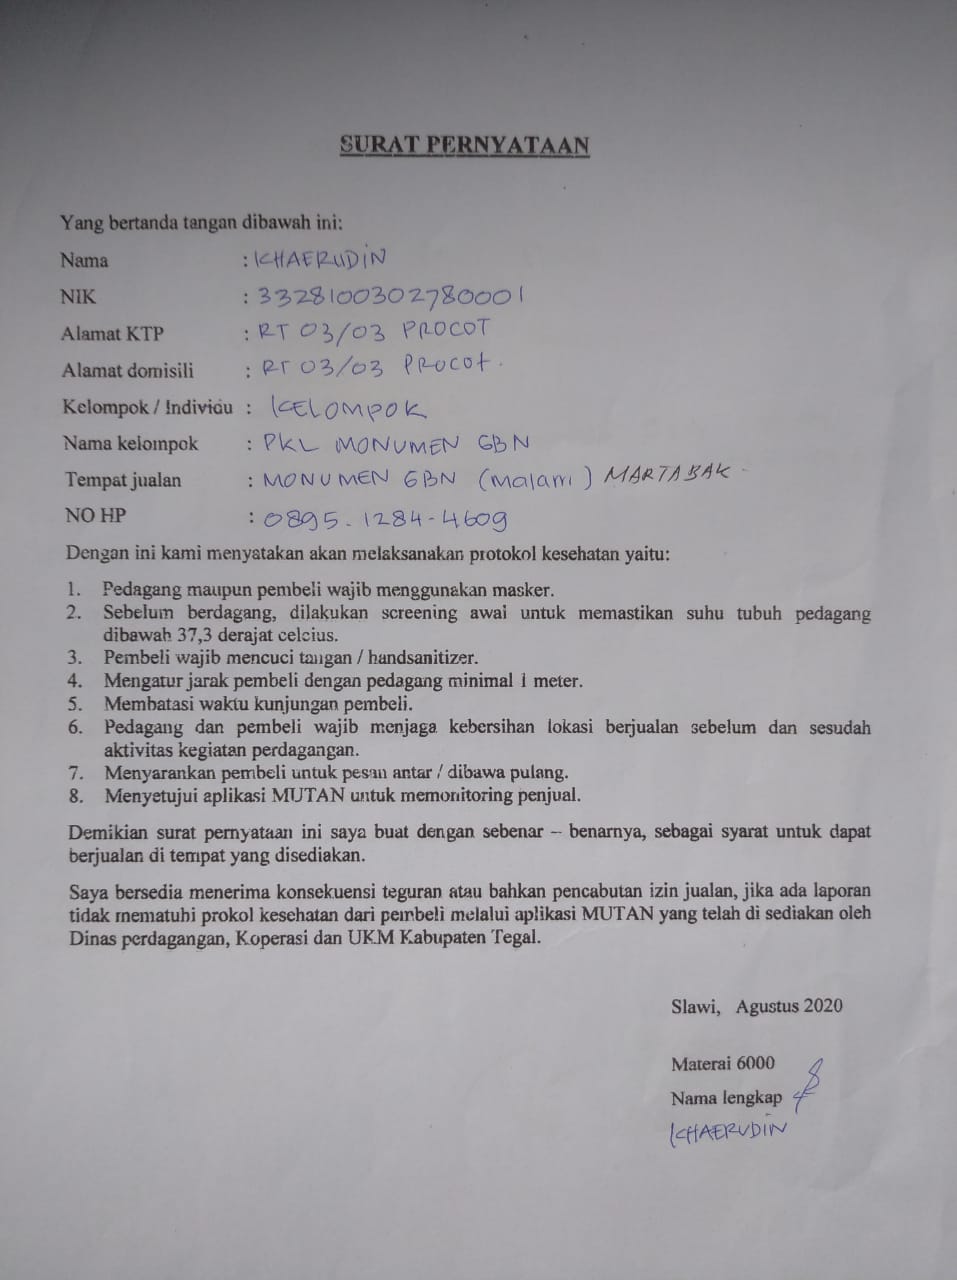 SURAT PERNYATAAN
Yang bertanda tangan dibawah ini:
Nama : KHAERUDIN
NIK : 3328100302780001
Alamat KTP : RT 03/03 PROCOT
Alamat domisili : RT 03/03 Procot.
Kelompok / Individu : KELOMPOK
Nama kelompok : PKL MONUMEN GBN
Tempat jualan : MONUMEN GBN (Malam) MARTABAK
NO HP : 0895-1284-4609
Dengan ini kami menyatakan akan melaksanakan protokol kesehatan yaitu:
1. Pedagang maupun pembeli wajib menggunakan masker.
2. Sebelum berdagang, dilakukan screening awal untuk memastikan suhu tubuh pedagang
dibawah 37,3 derajat celcius.
3. Pembeli wajib mencuci tangan / handsanitizer.
4. Mengatur jarak pembeli dengan pedagang minimal 1 meter.
5. Membatasi waktu kunjungan pembeli.
6. Pedagang dan pembeli wajib menjaga kebersihan lokasi berjualan sebelum dan sesudah
aktivitas kegiatan perdagangan.
7. Menyarankan pembeli untuk pesan antar / dibawa pulang.
8. Menyetujui aplikasi MUTAN untuk memonitoring penjual.
Demikian surat pernyataan ini saya buat dengan sebenar – benarnya, sebagai syarat untuk dapat
berjualan di tempat yang disediakan.
Saya bersedia menerima konsekuensi teguran atau bahkan pencabutan izin jualan, jika ada laporan
tidak mematuhi prokol kesehatan dari pembeli melalui aplikasi MUTAN yang telah di sediakan oleh
Dinas perdagangan, Koperasi dan UKM Kabupaten Tegal.
Slawi, Agustus 2020
Materai 6000
Nama lengkap
KHAERUDIN